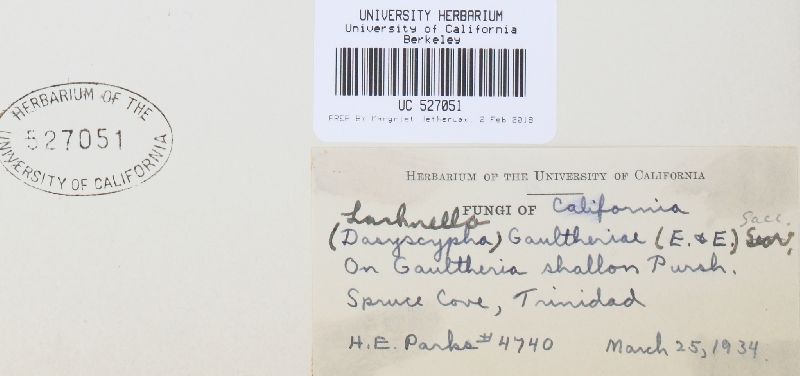 UNIVERSITY HERBARIUM
University of California
Berkeley
UC 527051
2 Feb 2018
HERBARIUM OF THE
527051
UNIVERSITY OF CALIFORNIA
HERBARIUM OF THE UNIVERSITY OF CALIFORNIA
FUNGI OF California
Lachnella
(Dasyscypha) Gaultheriae (E. & E.) Sacc.
On Gaultheria shallon Pursh.
Spruce Cove, Trinidad
H.E. Parks #4740 March 25, 1934.